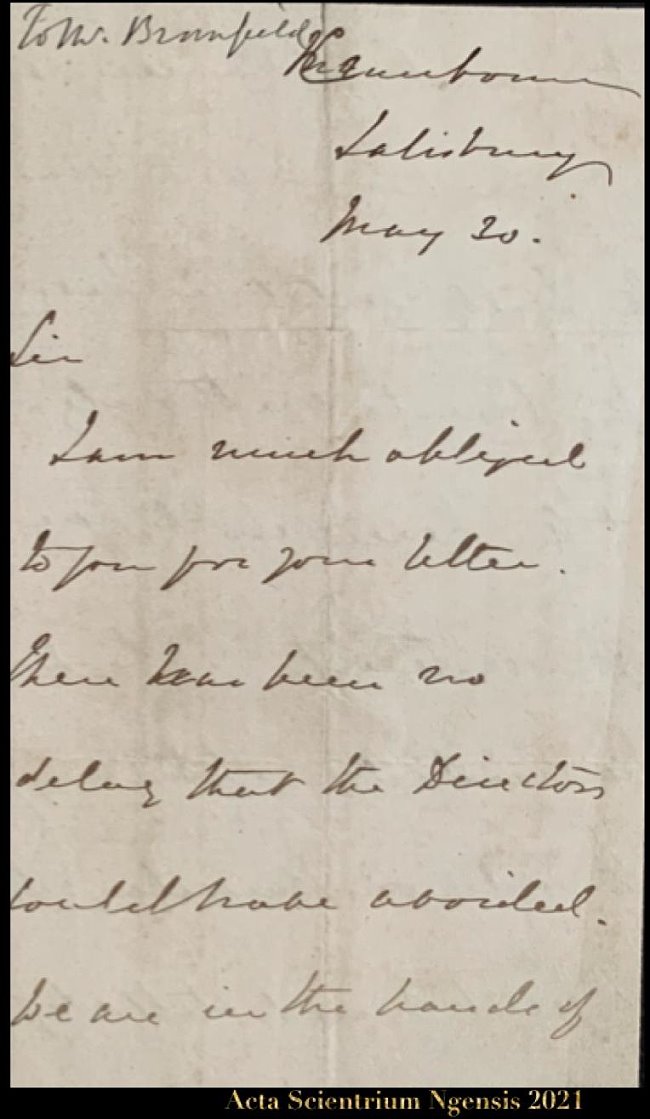 To Mr. Bromfield
Salisbury
May 20.
Sir
I am much obliged
to you for your letter.
There has been no
delay that the Directors
could have avoided.
We are in the hands of
Acta Scientrium Ngensis 2021